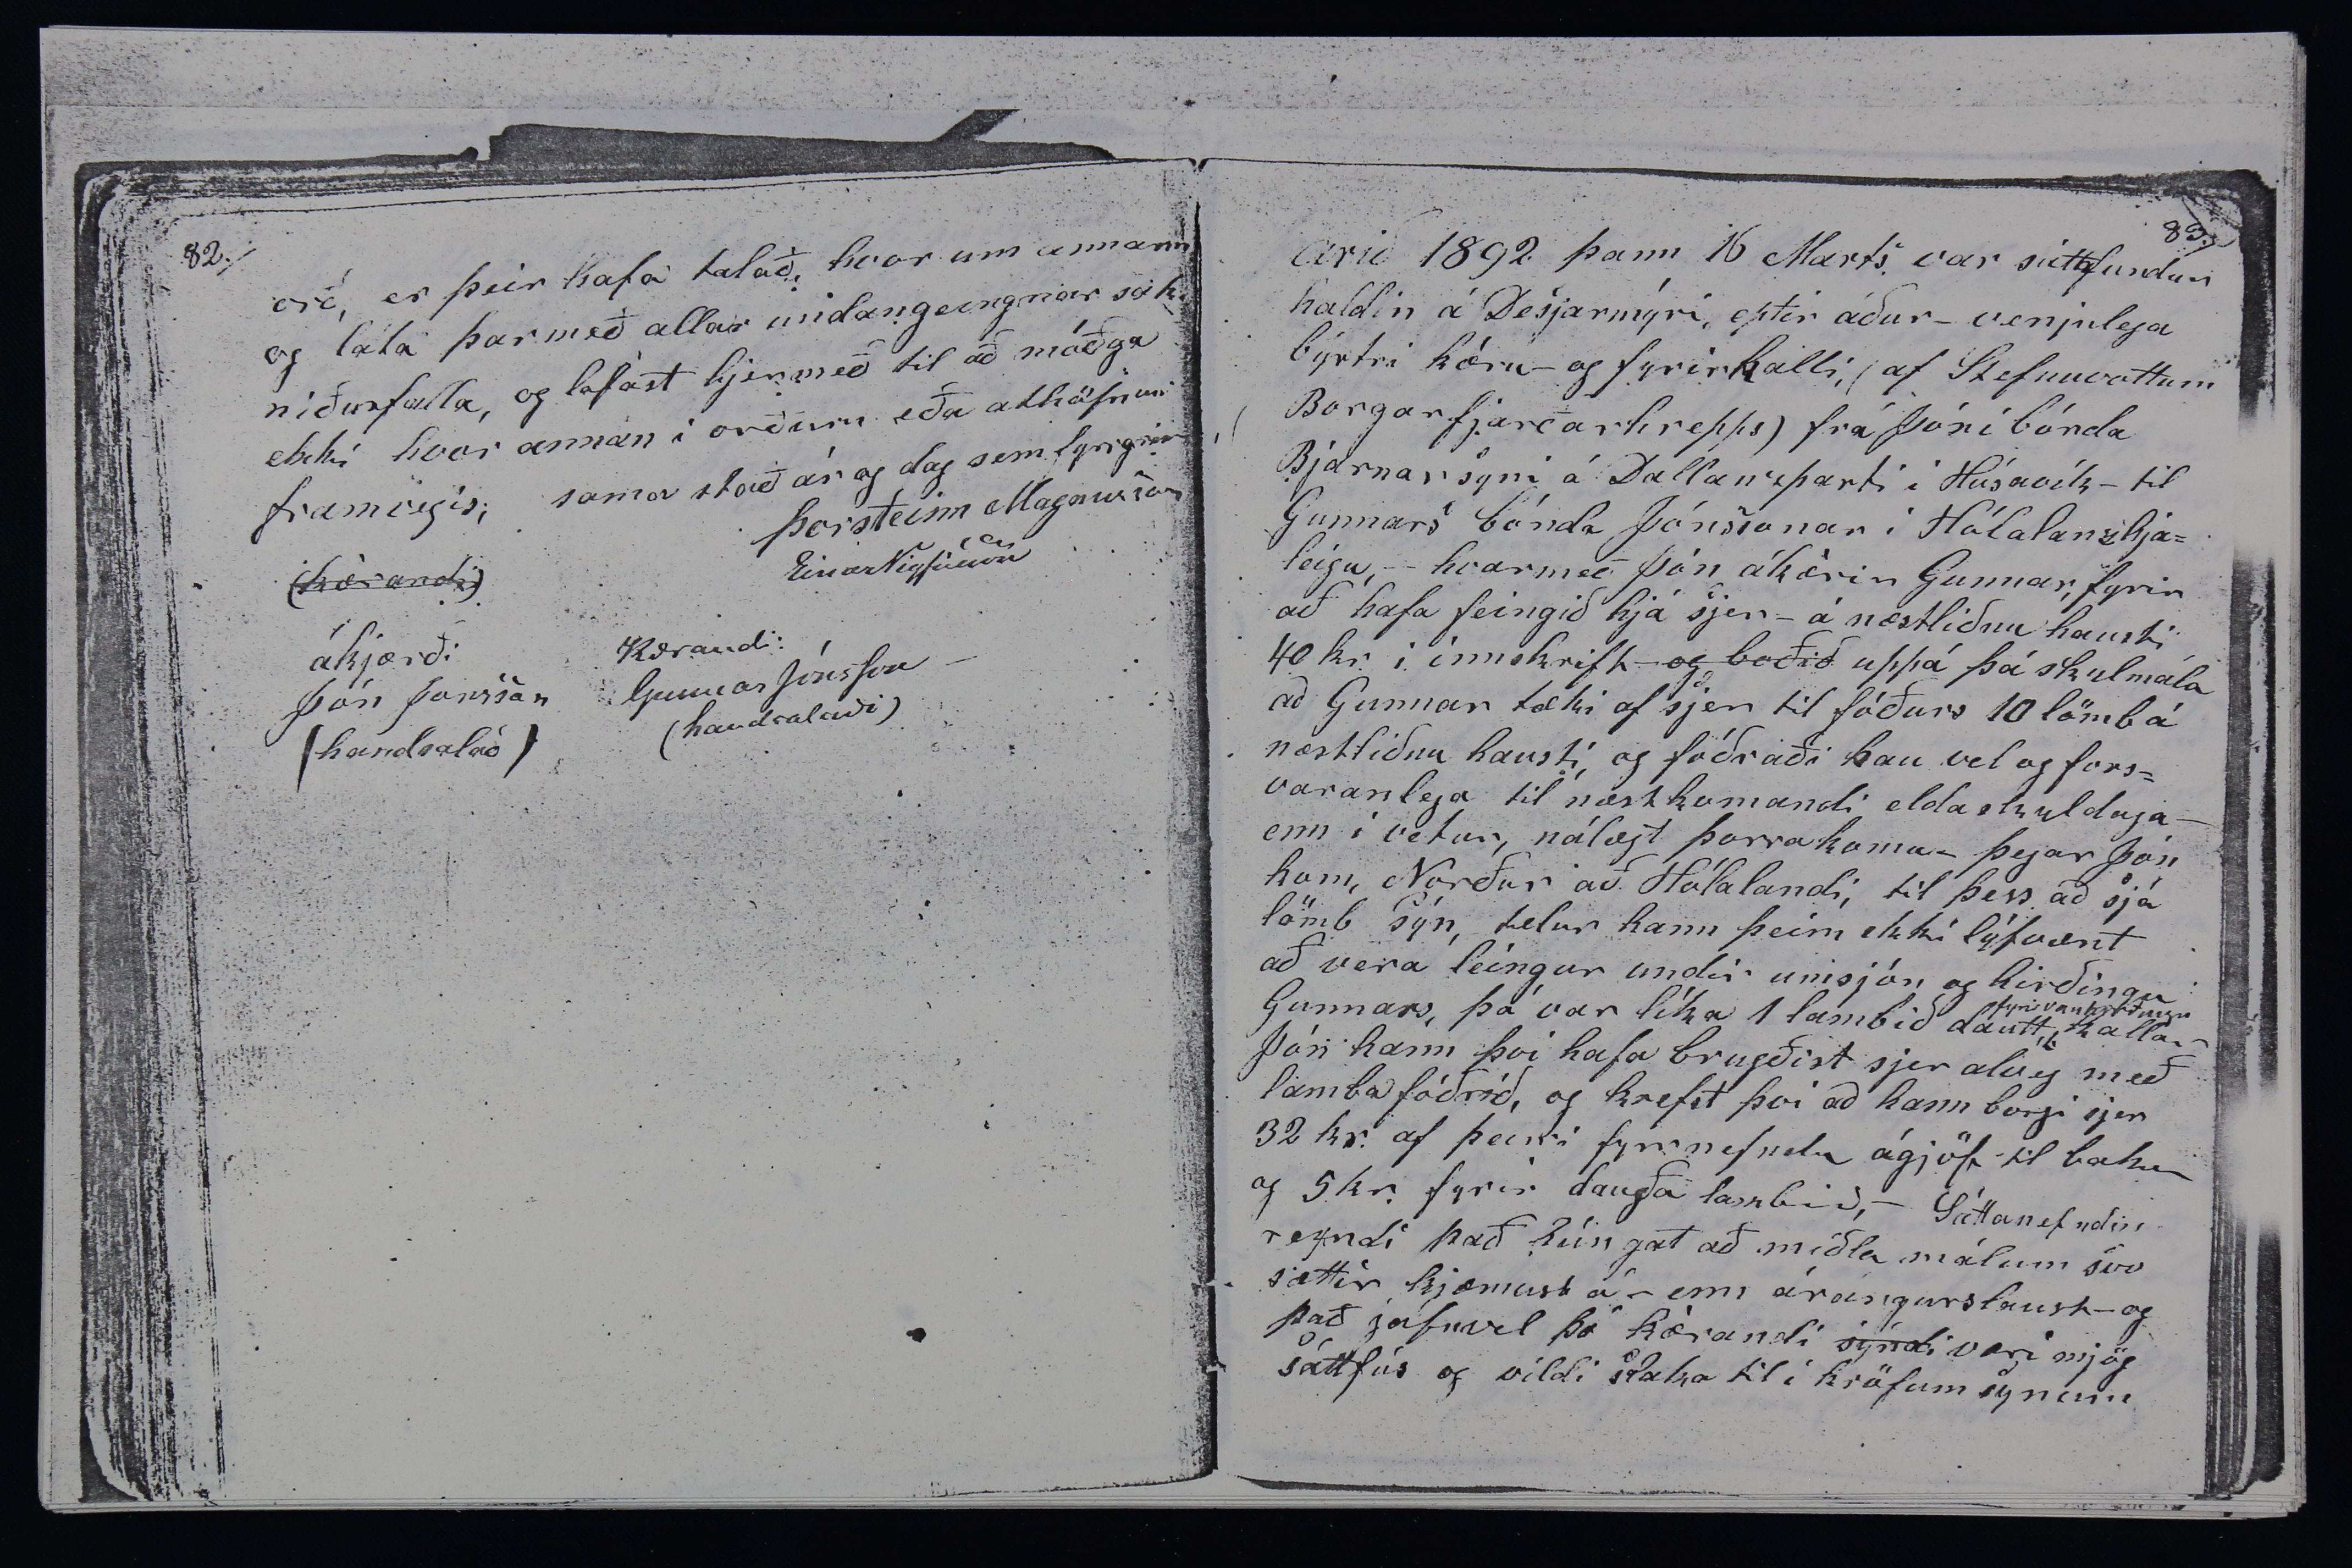 82./
orð, er þeir hafa talað, hvor um annann
og láta þarmeð allar undangeingnar sak.
niðurfalla, og lofast hjermeð til að móðga
ekki hvor annan í orðum eða athöfnum
framvegis; sama stað ár og dag sem fyrrgrein
Þorsteinn Magnusson
Einar Vigfússon
(kærandi)
ákjærði
Kærandi:
Jón Jonsson
Gunnar Jónsson
(handsalað)
(handsalaði)
83./
Árið 1892 þann 16 Marts. var sáttafundur
haldin á Desjarmýri, eptir áður- venjulega
býrtri kæru- og fyrirkalli, (af Stefnuvottum
Borgarfjarðarhrepps) frá Jóni bónda
Bjarnarsyni á Dallandsparti í Húsavík- til
Gunnars bónda Jónssonar í Hólalandshja=
leigu, - hvarmeð Jón ákærir Gunnar, fyrir
að hafa feingið hjá sjer - á næstliðnu hausti
40 kr. í innskrift og boðið uppá þá skulmála
að Gunnar tæki af sjer til fóðurs 10 lömb á
næstliðnu hausti, og fóðraði þau vel og fors=
varanlega til næstkomandi eldaskuldaga-
enn í vetur, nálægt þorrakomu- þegar Jón
kom, Norður að Hólalandi, til þess að sjá
lömb sýn, telur hann þeim ekki lýfvænt
að vera leingur undir umsjón og hirðingu
fyrir vanhirðingu
Gunnars, þá var líka 1 lambið dautt, kallar
Jón hann því hafa brugðist sjer alveg með
lambafóðrið, og krefst því að hann borgi sjer
32 kr. af þeirri fyrrnefndu ágjöf til baka
og 5 kr. fyrir dauða lambið, - Sáttanefndin
reyndi það húngat að miðla málum svo
sættir kjæmust á - enn árángurslaust - og
það jafnvel þó kærandi sýndi væri mjög
sáttfús og vildi slaka til í kröfum sýnum